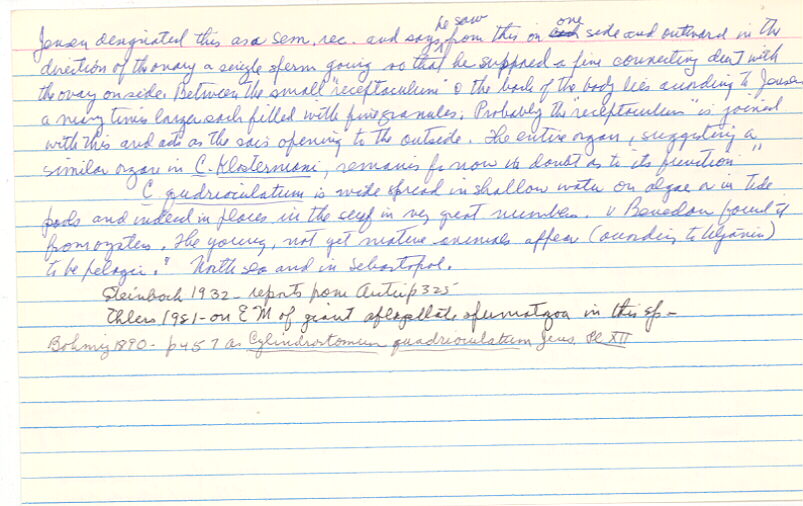 Jensen designated this as a sem. rec. and says he saw from this on one side and outward in the
direction of the ovary a single sperm going so that he supposed a fine connecting duct with
the ovary on side. Between the small "receptaculum" & the back of the body lies according to Jensen
a many times larger sack filled with fine granules. Probably the "receptaculum" is joined
with this and acts as the sac's opening to the outside. The entire organ, suggesting a
similar organ in C. Klostermani, remains for now in doubt as to its function"
C quadrioculatum is wide spread in shallow water on algae or in tide
pools and indeed in places in the surf in very great numbers. v Beneden found it
from oysters. The young, not yet mature animals appear (according to Uljanin)
to be pelagic." North sea and in Sebastopol.
Steinbock 1932 - reports from p325
Ehlers 1981 - on EM of giant aflagellate spermatozoa in this sp -
Bohmig 1890 - p457 as Cylindrostomum quadrioculatum Jens. Pl XII